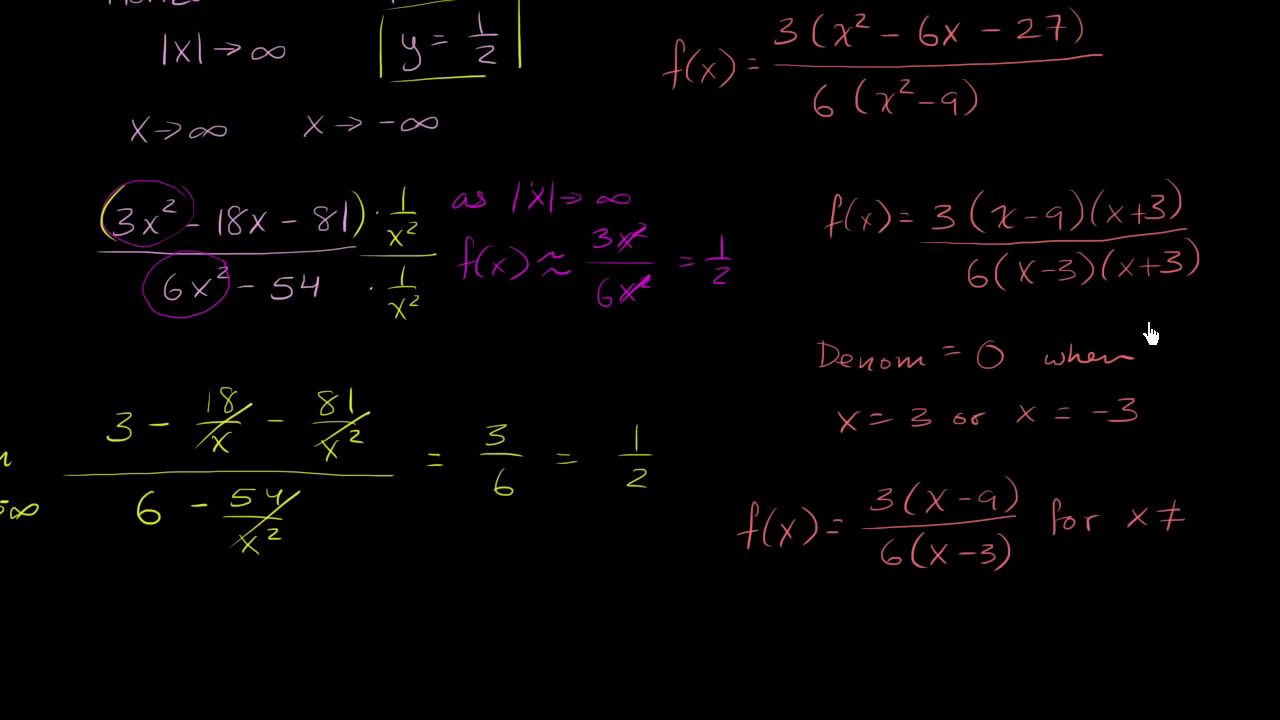 |x| → ∞
y = 1/2
x → ∞ x → -∞
(3x² - 18x - 81) · 1/x²
6x² - 54 · 1/x²
as |x| → ∞
f(x) ≈ 3x²/6x² = 1/2
3 - 18/x - 81/x²
6 - 54/x²
= 3/6 = 1/2
f(x) = 3(x² - 6x - 27)
6(x² - 9)
f(x) = 3(x - 9)(x + 3)
6(x - 3)(x + 3)
Denom = 0 when
x = 3 or x = -3
f(x) = 3(x - 9)/6(x - 3) for x ≠